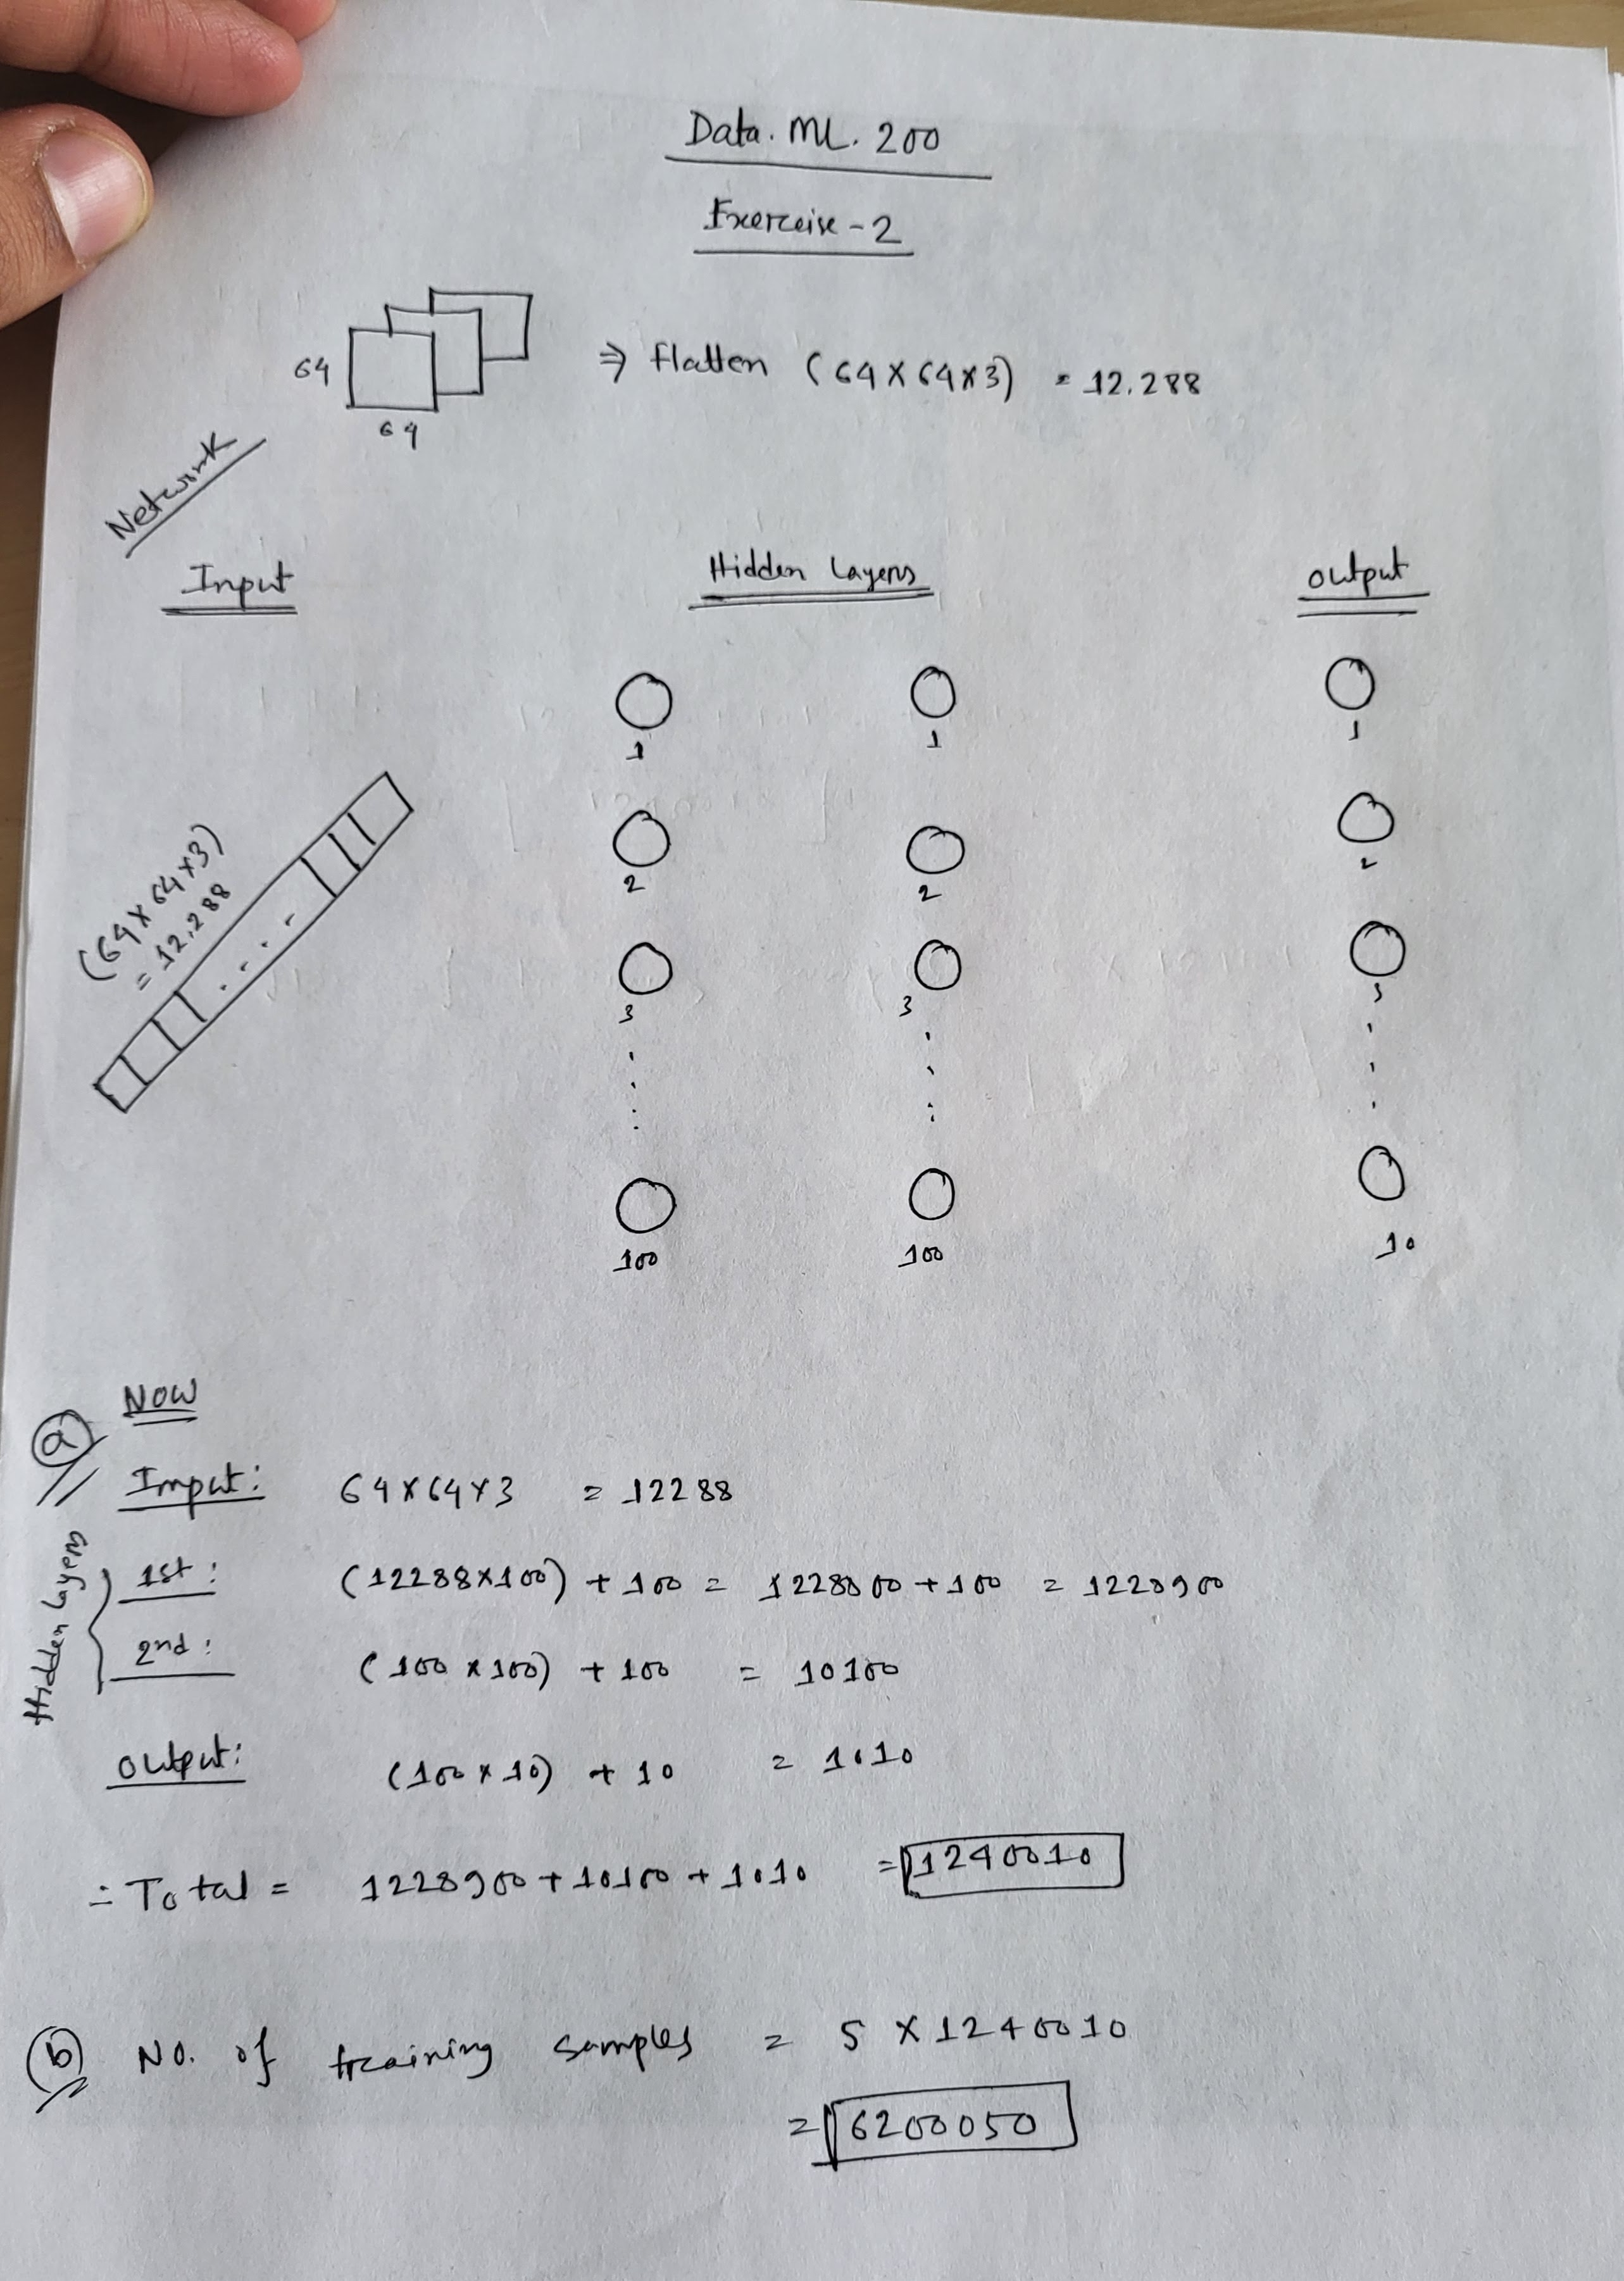 Data. ML. 200
Exercise - 2
64
64
⇒ flatten (64 X 64 X 3) = 12.288
Network
Input
Hidden Layers
output
1
1
1
2
2
2
3
3
3
100
100
10
(64 X 64 X 3)
= 12.288
Now
a
Input: 64 X 64 X 3 = 12288
Hidden Layers
1st: (12288 X 100) + 100 = 1228800 + 100 = 1228900
2nd: (100 X 100) + 100 = 10100
output: (100 X 10) + 10 = 1010
∴ Total = 1228900 + 10100 + 1010 = 1240010
b No. of training samples = 5 X 1240010
= 6200050